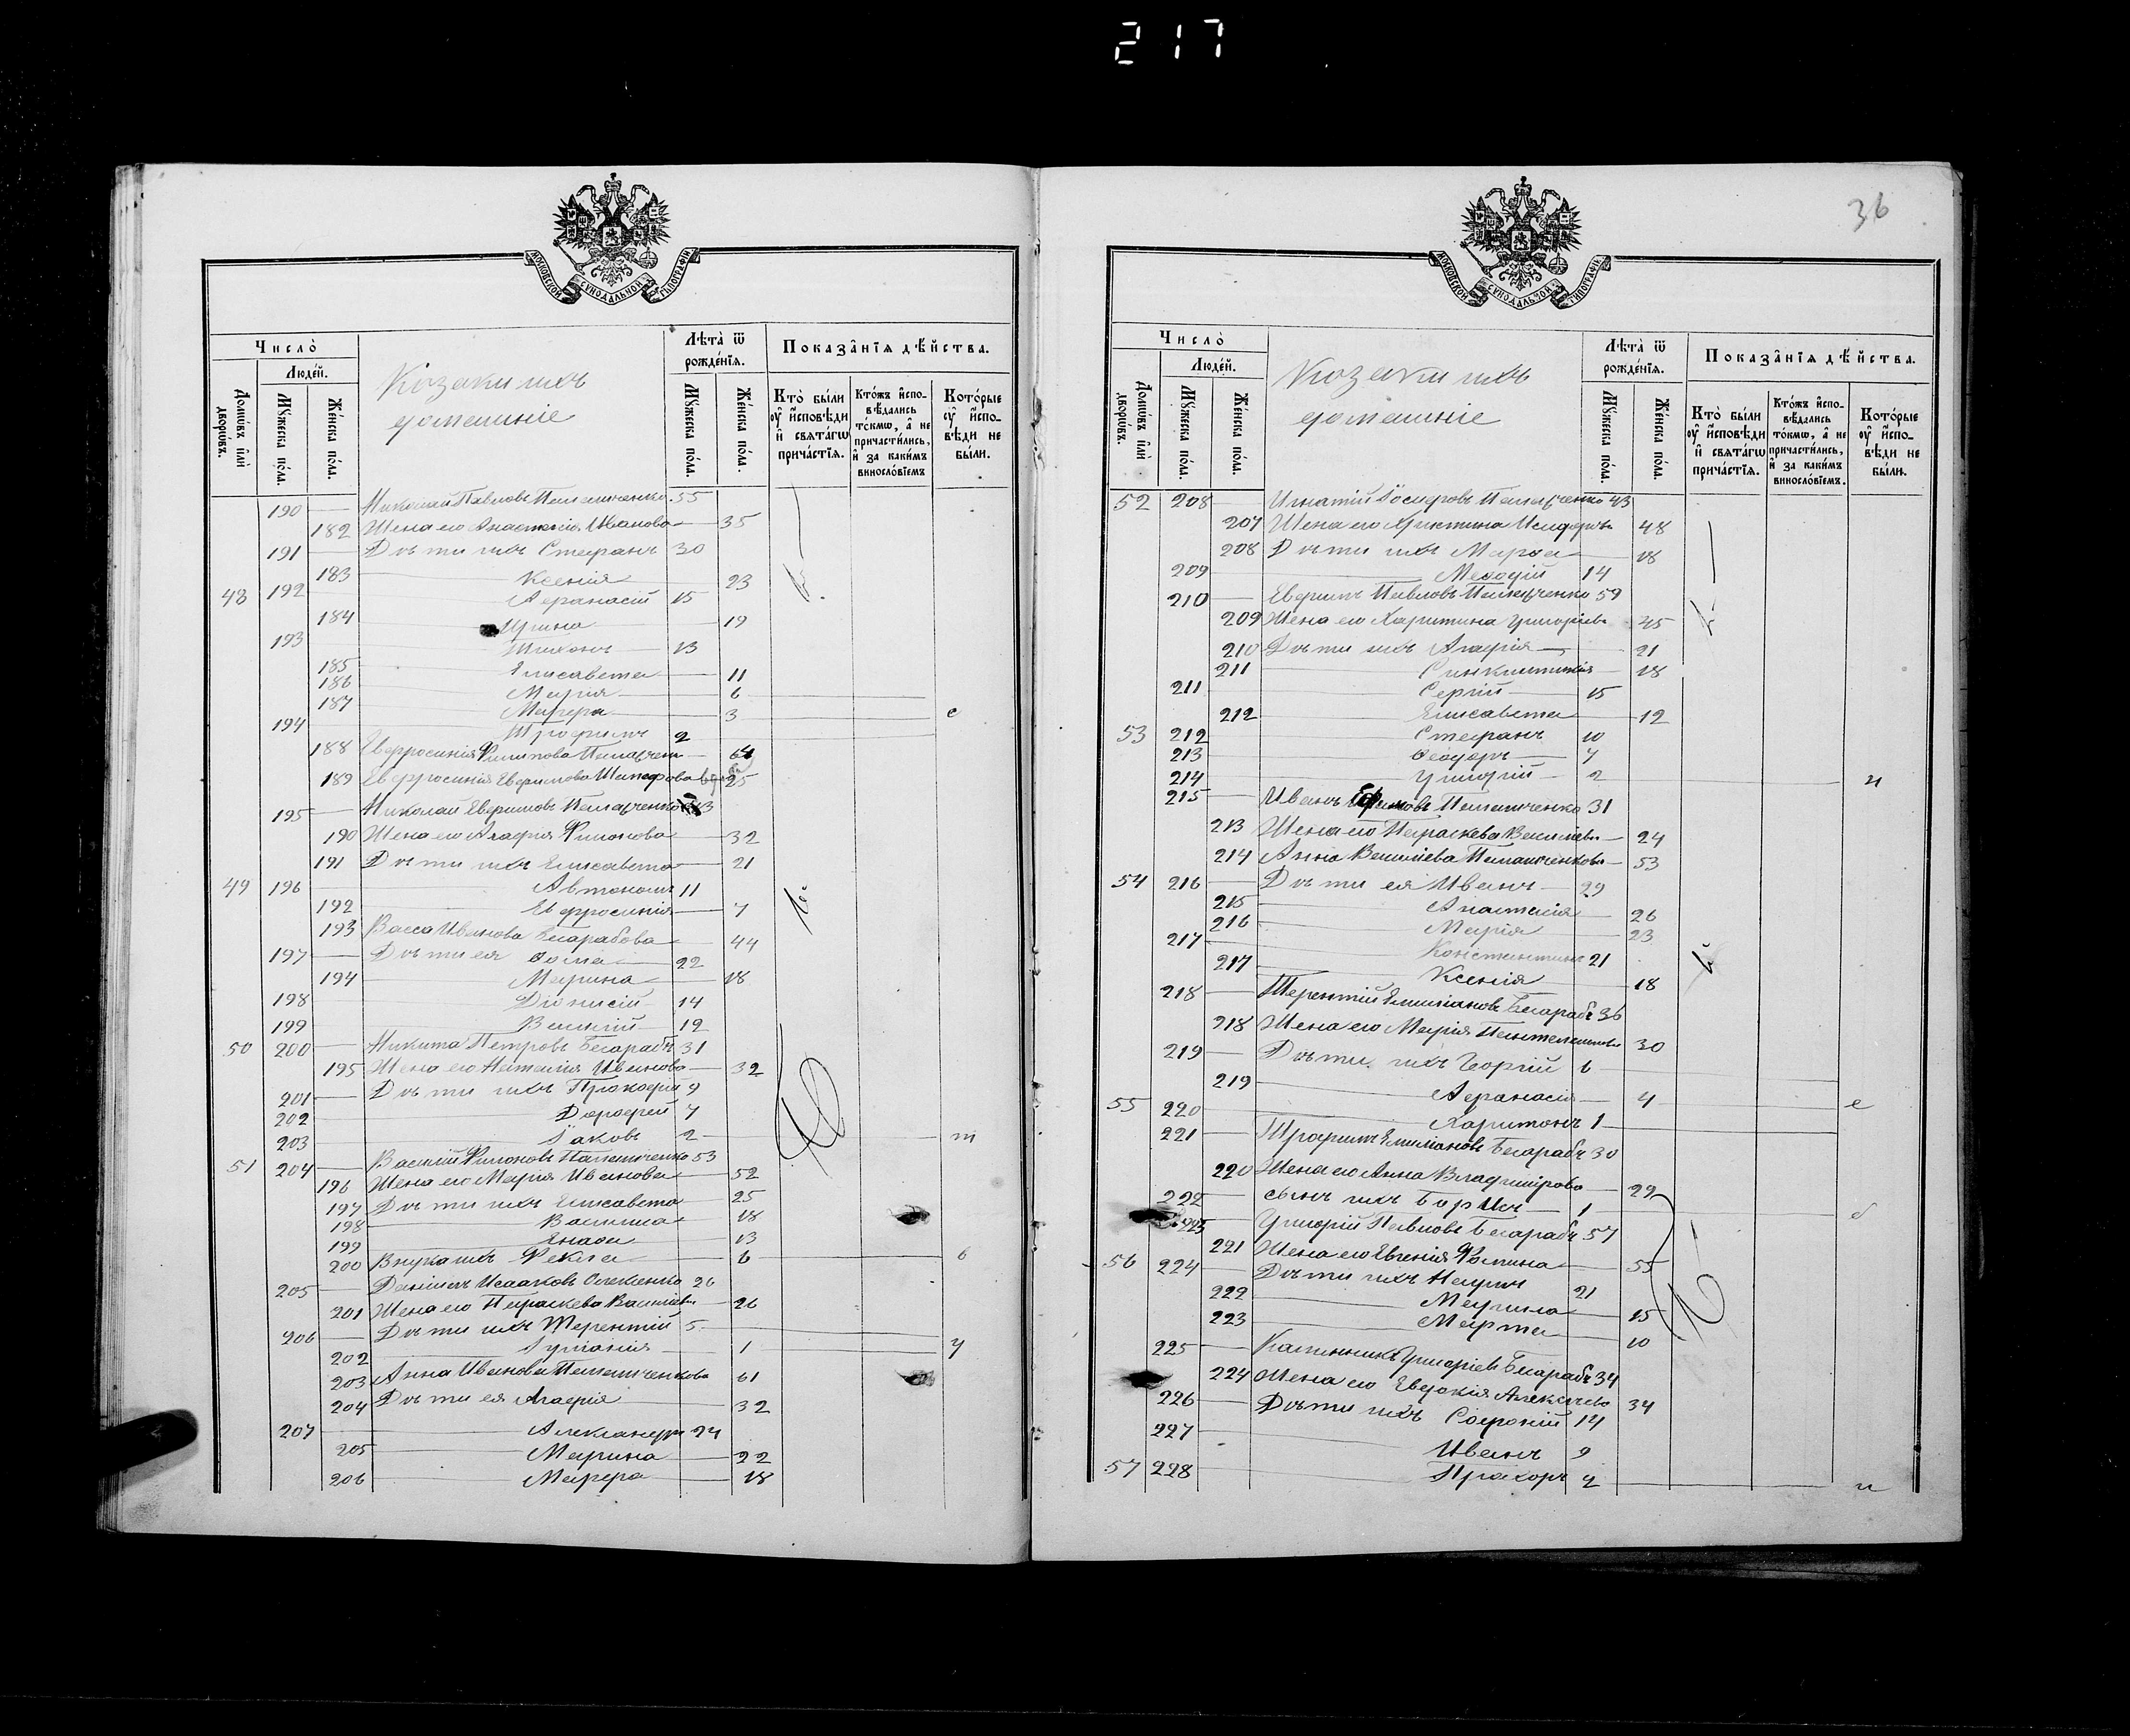 217
МОСКОВСКОЙ СѴНОДАЛЬНОЙ ТѴПОГРАФІИ
Число̀
Людéй.
Домѡ́въ и҆лѝ дворѡ́въ.
Мꙋ́жеска по́ла.
Же́нска по́ла.
Козаки ихъ
домашніе
Лѣ́та ѿ рожде́нїѧ.
Мꙋ́жеска по́ла.
Же́нска по́ла.
Показа̑нїѧ дѣ́йства.
Кто̀ бы́ли ᲂу҆ и҆сповѣ́ди и҆ свѧта́гѡ прича́стїѧ.
Кто́жъ и҆сповѣ́дались то́кмѡ, а҆ не причасти́лись, и҆ за каки́мъ винослѡ́вїемъ
Кото́рые ᲂу҆ и҆сповѣ́ди не бы́ли.
190 Николай Павловъ 55
182 Жена его Анастасія Иванова 35
191 Дѣти ихъ Стефанъ 30
183 Ксенія 23
48 192 Афанасій 15
184 Ирина 19
193 Тихонъ 13
185 Елисавета 11
186 Марія 6
187 Марфа 3 с
194 Трофимъ 2
188 Евфросинія Филипова 64
189 Евфросинія Евфимова 25
195 Николай Евфимовъ
190 Жена его Агафія Филонова 32
191 Дѣти ихъ Елисавета 21
49 196 Автономъ 11
192 Евфросинія 7
193 Васса Иванова Бесарабова 44
197 Дѣти ея Ѳома 22
194 Марина 18
198 Діонисій 14
199 Василій 12
50 200 Никита Петровъ Бесарабъ 31
195 Жена его Наталія Иванова 32
201 Дѣти ихъ Прокофій 9
202 Дорофей 7
203 Іаковъ 2 т
51 204 Василій Филоновъ 53
196 Жена его Марія Иванова 52
197 Дѣти ихъ Елисавета 25
198 Василиса 18
199 13
200 Внука ихъ Фекла 6 6
205 Даніилъ Исааковъ Олексенко 26
201 Жена его Параскева Василіева 26
206 Дѣти ихъ Терентій 5
202 1 у
203 Анна Иванова 61
204 Дѣти ея Агафія 32
207 Александръ 24
205 Марина 22
206 Марфа 18
36
МОСКОВСКОЙ СѴНОДАЛЬНОЙ ТѴПОГРАФІИ
Число̀
Людéй.
Домѡ́въ и҆лѝ дворѡ́въ.
Мꙋ́жеска по́ла.
Же́нска по́ла.
Козаки ихъ
домашніе
Лѣ́та ѿ рожде́нїѧ.
Мꙋ́жеска по́ла.
Же́нска по́ла.
Показа̑нїѧ дѣ́йства.
Кто̀ бы́ли ᲂу҆ и҆сповѣ́ди и҆ свѧта́гѡ прича́стїѧ.
Кто́жъ и҆сповѣ́дались то́кмѡ, а҆ не причасти́лись, и҆ за каки́мъ винослѡ́вїемъ.
Кото́рые ᲂу҆ и҆сповѣ́ди не бы́ли.
52 208 Игнатій Іосифовъ 43
207 Жена его Христина 48
208 Дѣти ихъ Марѳа 18
209 Меѳодій 14
210 Евфимъ Павловъ 59
209 Жена его Харитина Григоріева 45
210 Дѣти ихъ Агафія 21
211 Синклитикія 18
211 Сергій 15
212 Елисавета 12
53 212 Стефанъ 10
213 Ѳеодоръ 7
214 Григорій 2 и
215 Иванъ 31
213 Жена его Параскева Василіева 24
214 Анна Василіева 53
54 216 Дѣти ея Иванъ 29
215 Анастасія 26
216 Марія 23
217 Константинъ 21
217 Ксенія 18
218 Терентій Емиліановъ Бесарабъ 36
218 Жена его Марія Пантелимонова 30
219 Дѣти ихъ Георгій 6
219 Афанасія 4
55 220 Харитонъ 1 е
221 Трофимъ Емиліановъ Бесарабъ 30
220 Жена его Анна Владимірова 29
222 сынъ ихъ Борисъ 1
223 Григорій Павловъ Бесарабъ 57
221 Жена его Евгенія Фомина 55
56 224 Дѣти ихъ 21
222 Марина 15
223 Марта 10
225 Калинникъ Григоріевъ Бесарабъ 34
224 Жена его Евдокія Алексѣева 34
226 Дѣти ихъ Софоній 14
227 Иванъ 9
57 228 Прохоръ 2 и